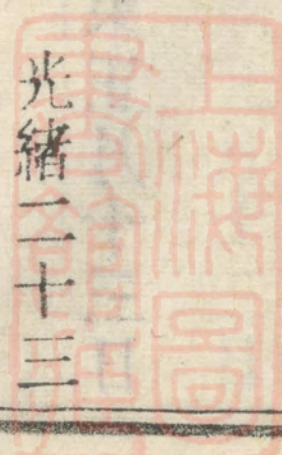 光緒二十三
上海圖
書館藏